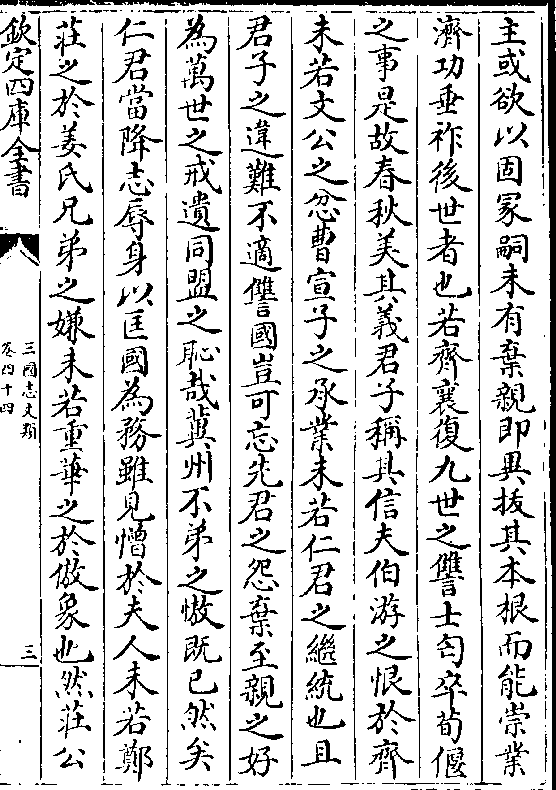 主或欲以固冢嗣未有棄親即異拔其本根而能崇業
濟功垂祚後世者也若齊襄復九世之讐士匄卒荀偃
之事是故春秋美其義君子稱其信夫伯游之恨於齊
未若文公之忿曹宣子之承業未若仁君之繼統也且
君子之違難不適讐國豈可忘先君之怨棄至親之好
為萬世之戒遺同盟之恥哉冀州不弟之慠既已然矣
仁君當降志辱身以匡國為務雖見憎於夫人未若鄭
莊之於姜氏兄弟之嫌未若重華之於傲象也然莊公
欽定四庫全書
三國志文類
卷四十四
三